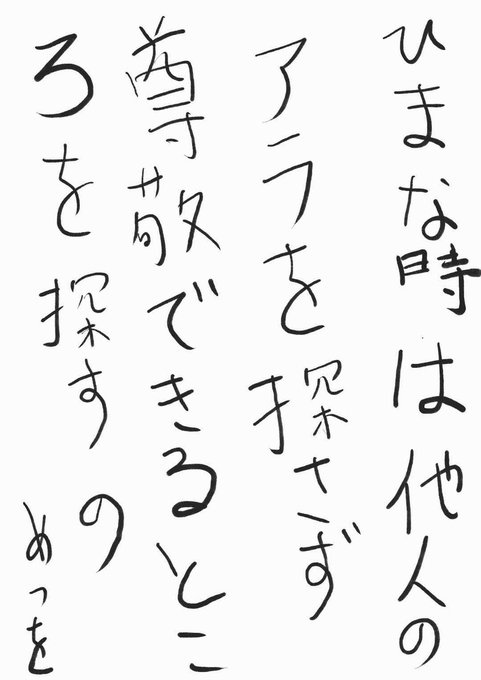 ひまな時は他人の
アラを探さず
尊敬できるとこ
ろを探す の
めっを